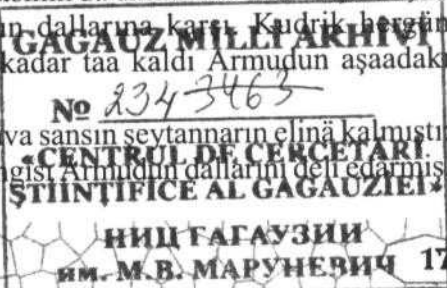 ın dallarına karşı. Kudrik hergün
GAGAUZ MİLLİ ARHİVİ
kadar taa kaldı Armudun aşaadaki
№ 2343463
va sansın şeytannarın elinä kalmıştı
«CENTRUL DE CERCETĂRI
Armudun dallarını deli edärmiş
ŞTIINŢIFICE AL GAGAUZIEI»
НИЦ ГАГАУЗИИ
им. М.В. МАРУНЕВИЧ 17